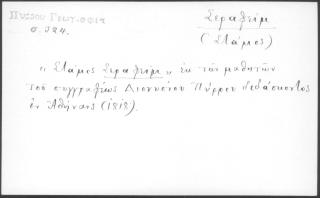 Πύρρου Γεωγραφία
σ. 324.
Σεραφείμ
(Στάμος)
"Στάμος Σεραφείμ" ἐκ τῶν μαθητῶν
τοῦ συγγραφέως Διονυσίου Πύρρου διδάσκοντος
ἐν Ἀθήναις (1818).